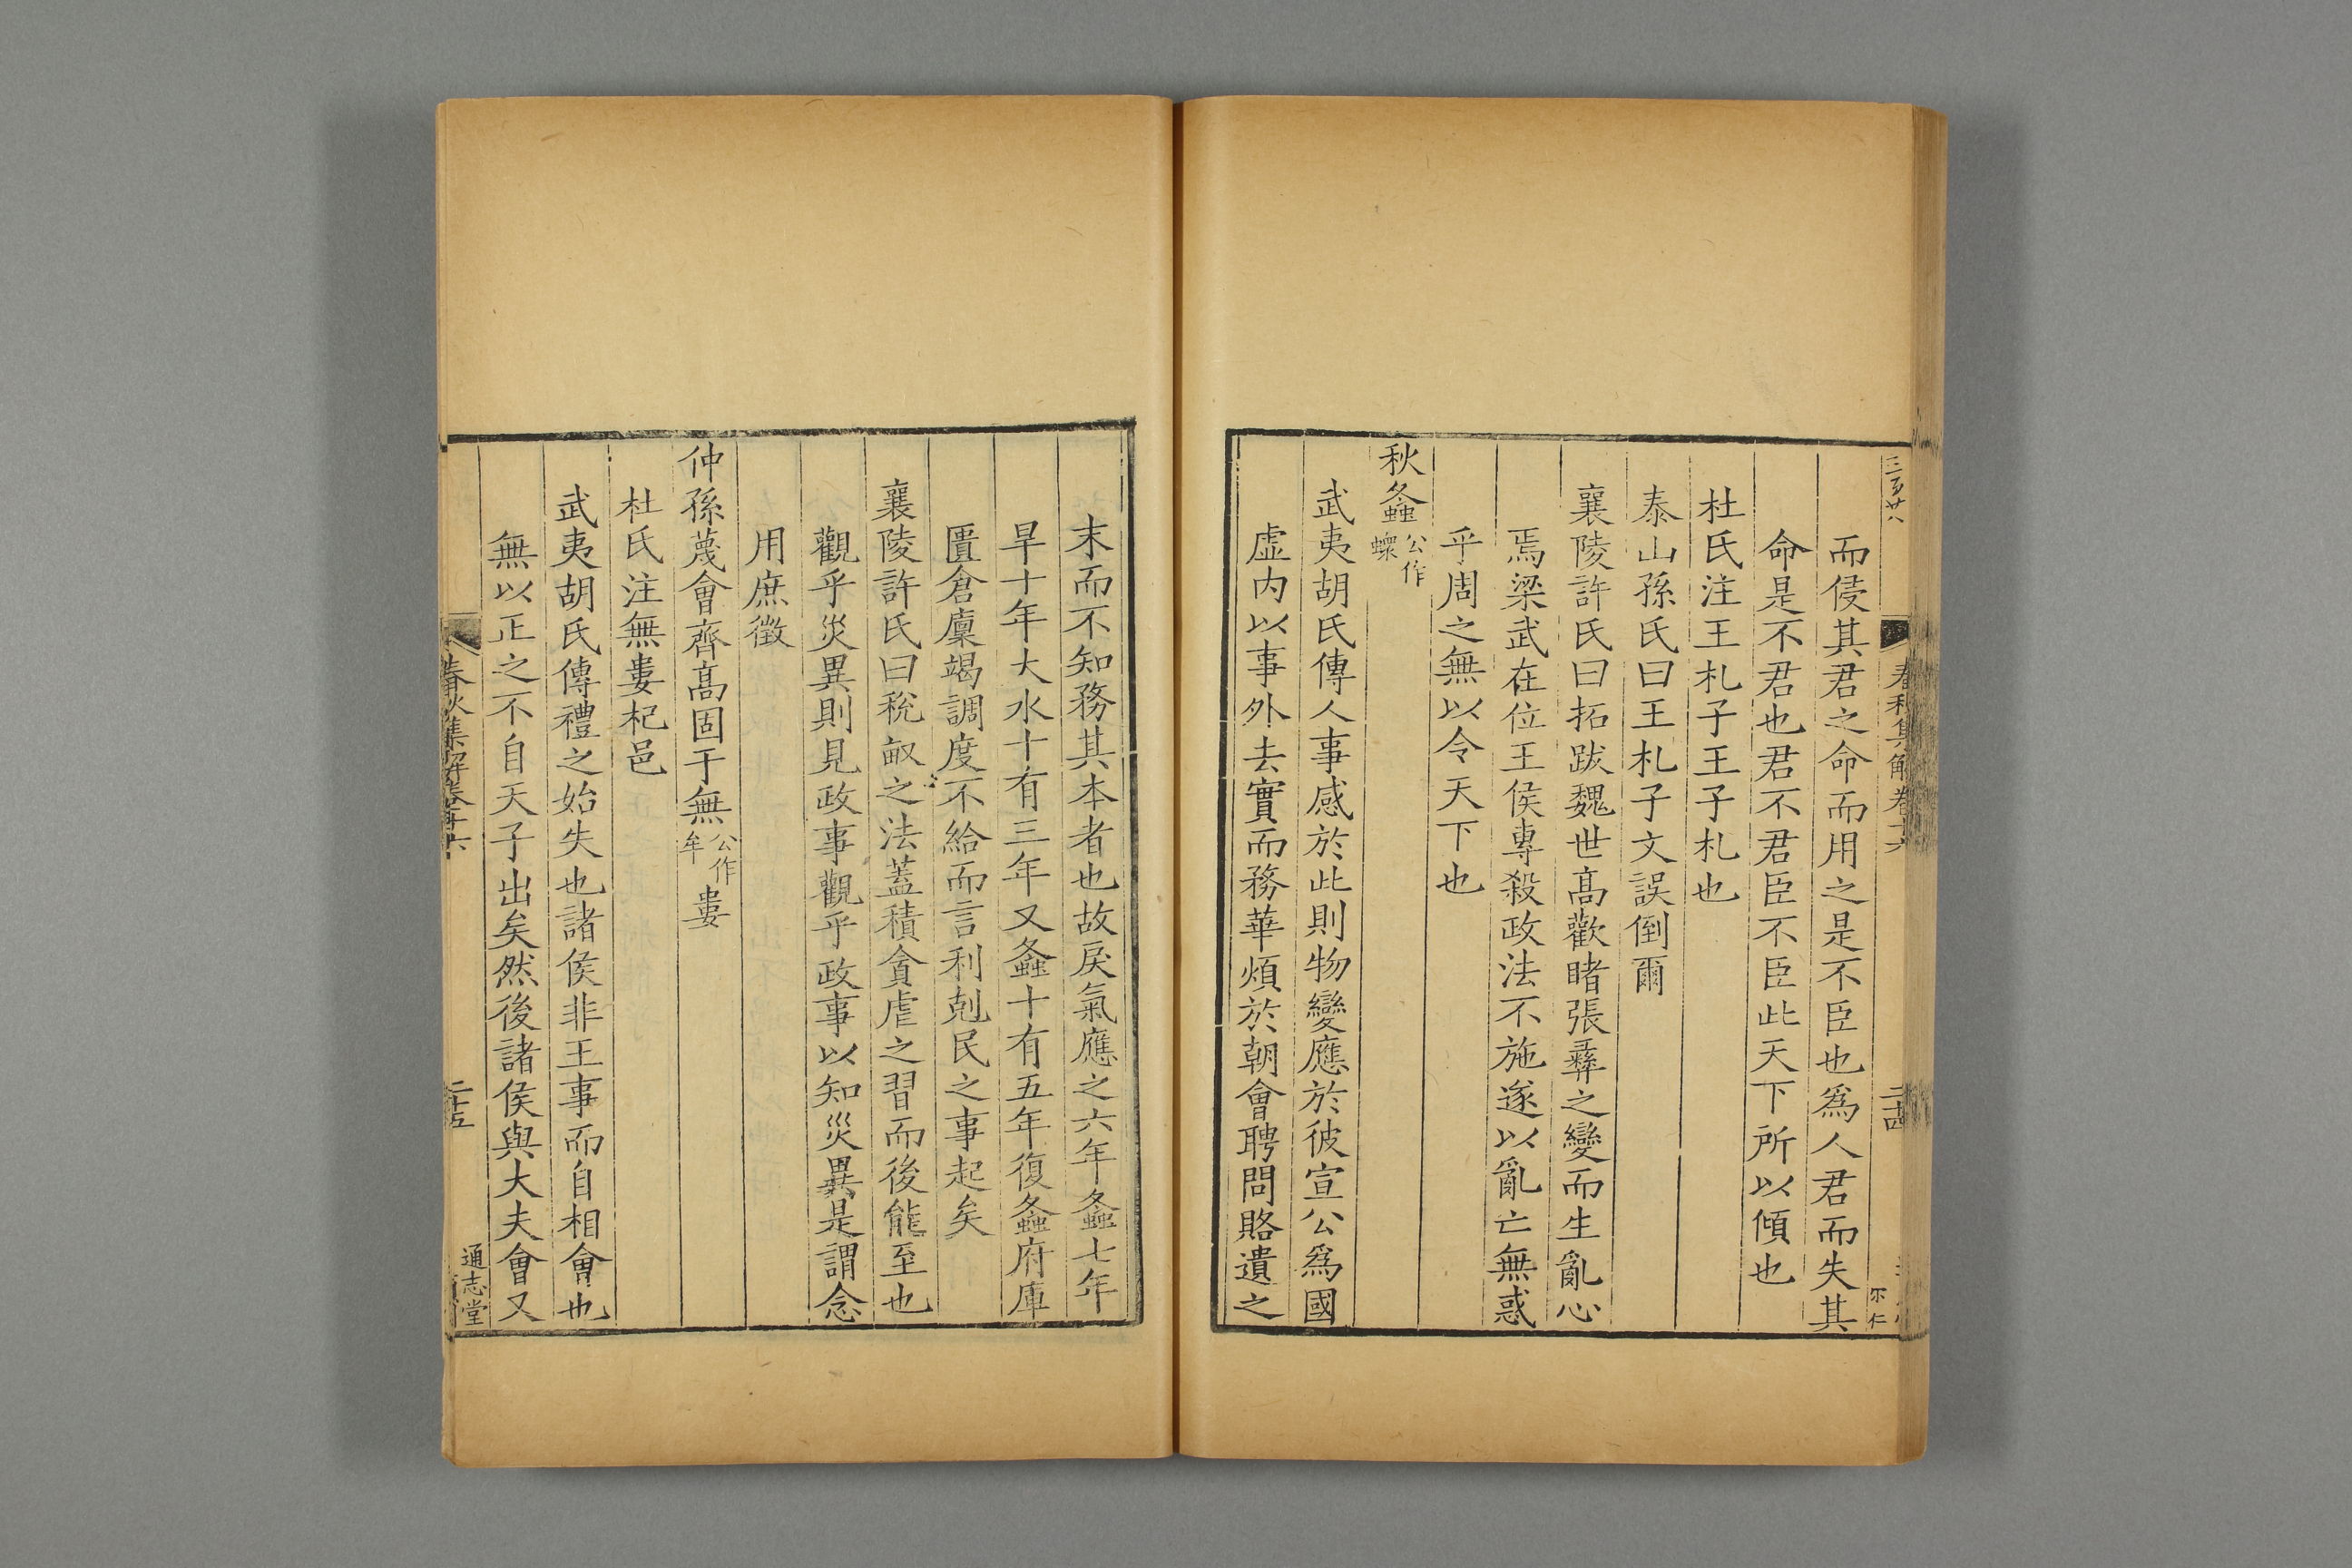 而侵其君之命而用之是不臣也爲人君而失其
命是不君也君不君臣不臣此天下所以傾也
杜氏注王札子王子札也
泰山孫氏曰王札子文誤倒爾
襄陵許氏曰拓跋魏世髙歡睹張彝之變而生亂心
焉梁武在位王侯專殺政法不施遂以亂亡無惑
乎周之無以令天下也
秋螽公作蠓
武夷胡氏傳人事感於此則物變應於彼宣公爲國
虛内以事外去實而務華煩於朝會聘問賂遺之
末而不知務其本者也故戾氣應之六年螽七年
旱十年大水十有三年又螽十有五年復螽府庫
匱倉廩竭調度不給而言利剋民之事起矣
襄陵許氏曰稅畝之法蓋積貪虐之習而後能至也
觀乎災異則見政事觀乎政事以知災異是謂念
用庶徵
仲孫蔑會齊髙固于無公作牟婁
杜氏注無婁杞邑
武夷胡氏傳禮之始失也諸侯非王事而自相會也
無以正之不自天子出矣然後諸侯與大夫會又
春秋集解卷十六
二十五
通志堂